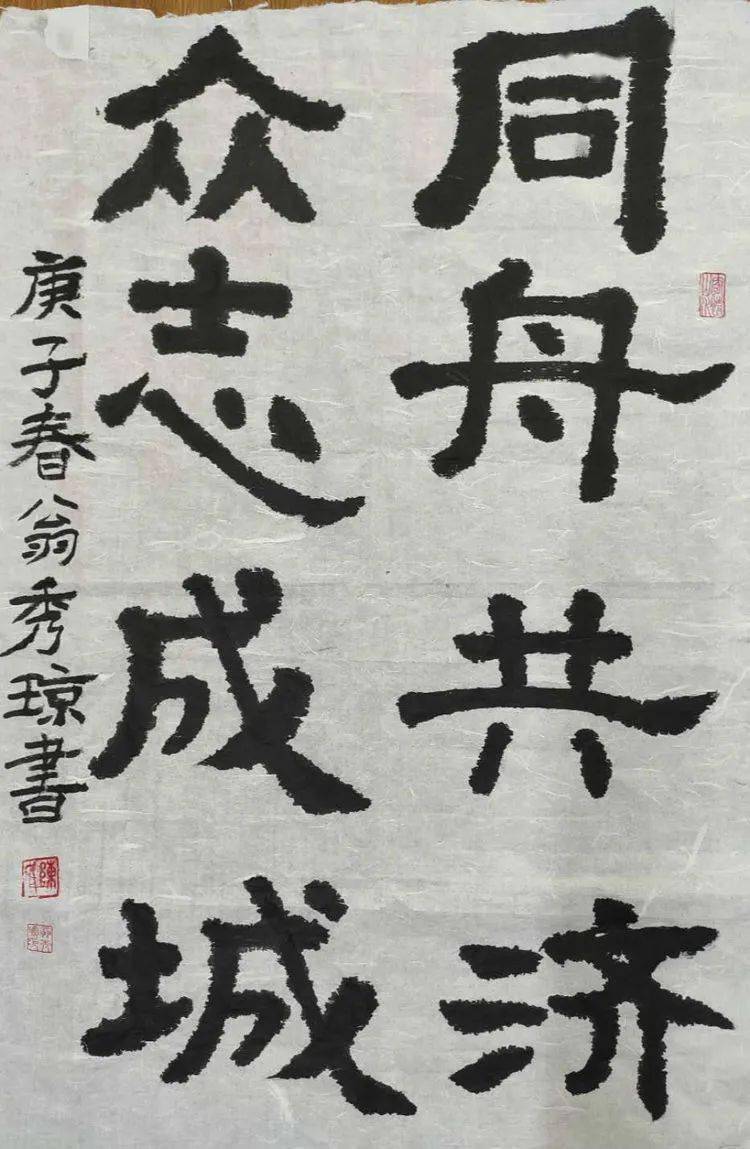 同舟共济
众志成城
庚子春翁秀琼書